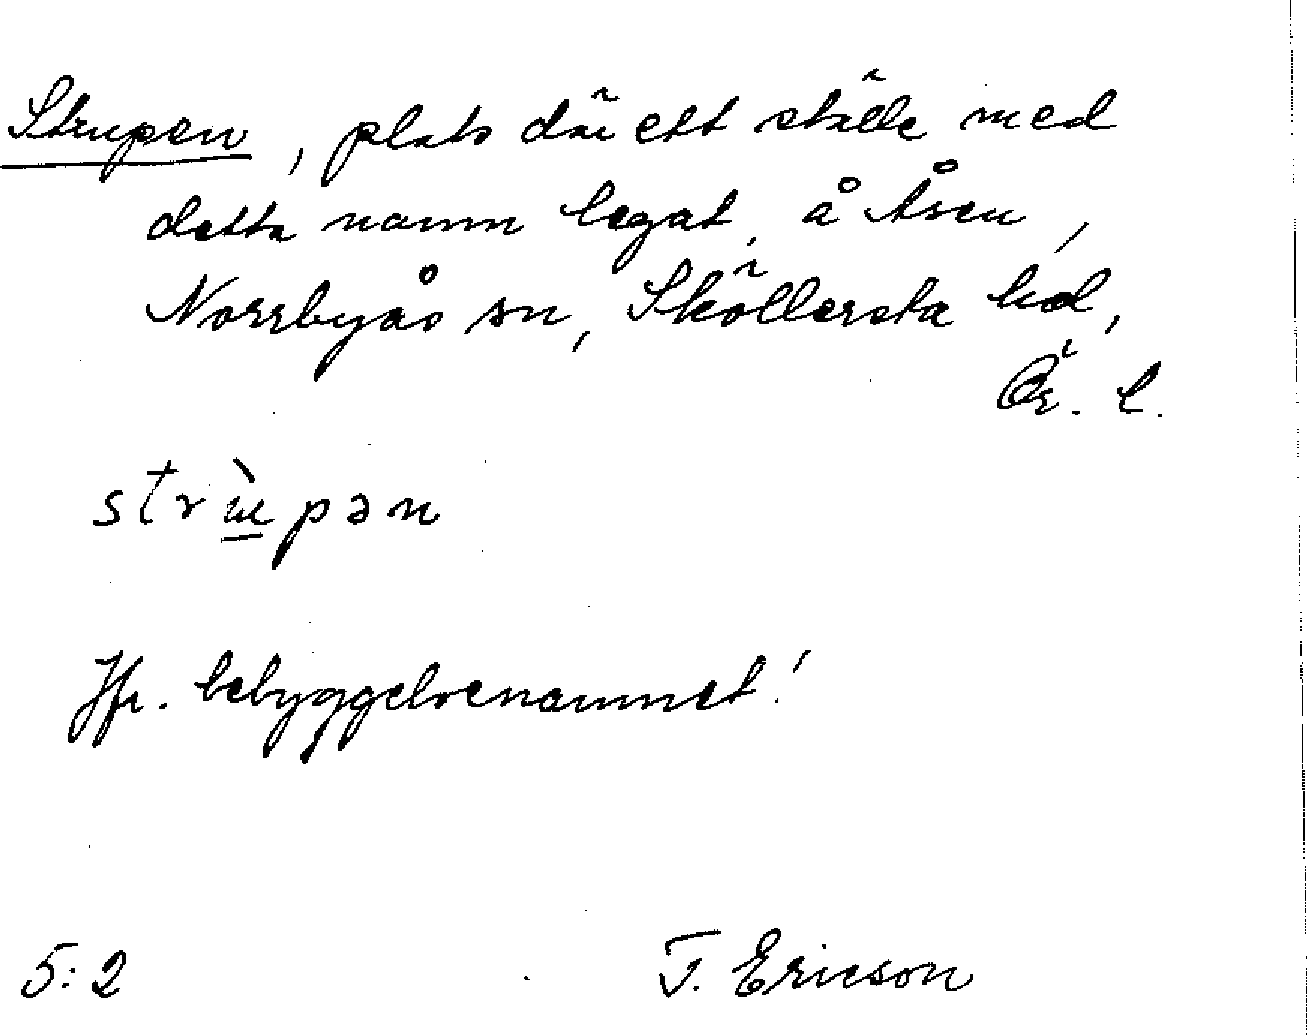 Strupen, plats där ett ställe med
detta namn legat, å Åsen,
Norrbyås sn, Sköllersta hd,
Ör. l.
strùpən
Jfr. bebyggelsenamnet!
5:2 T. Ericson